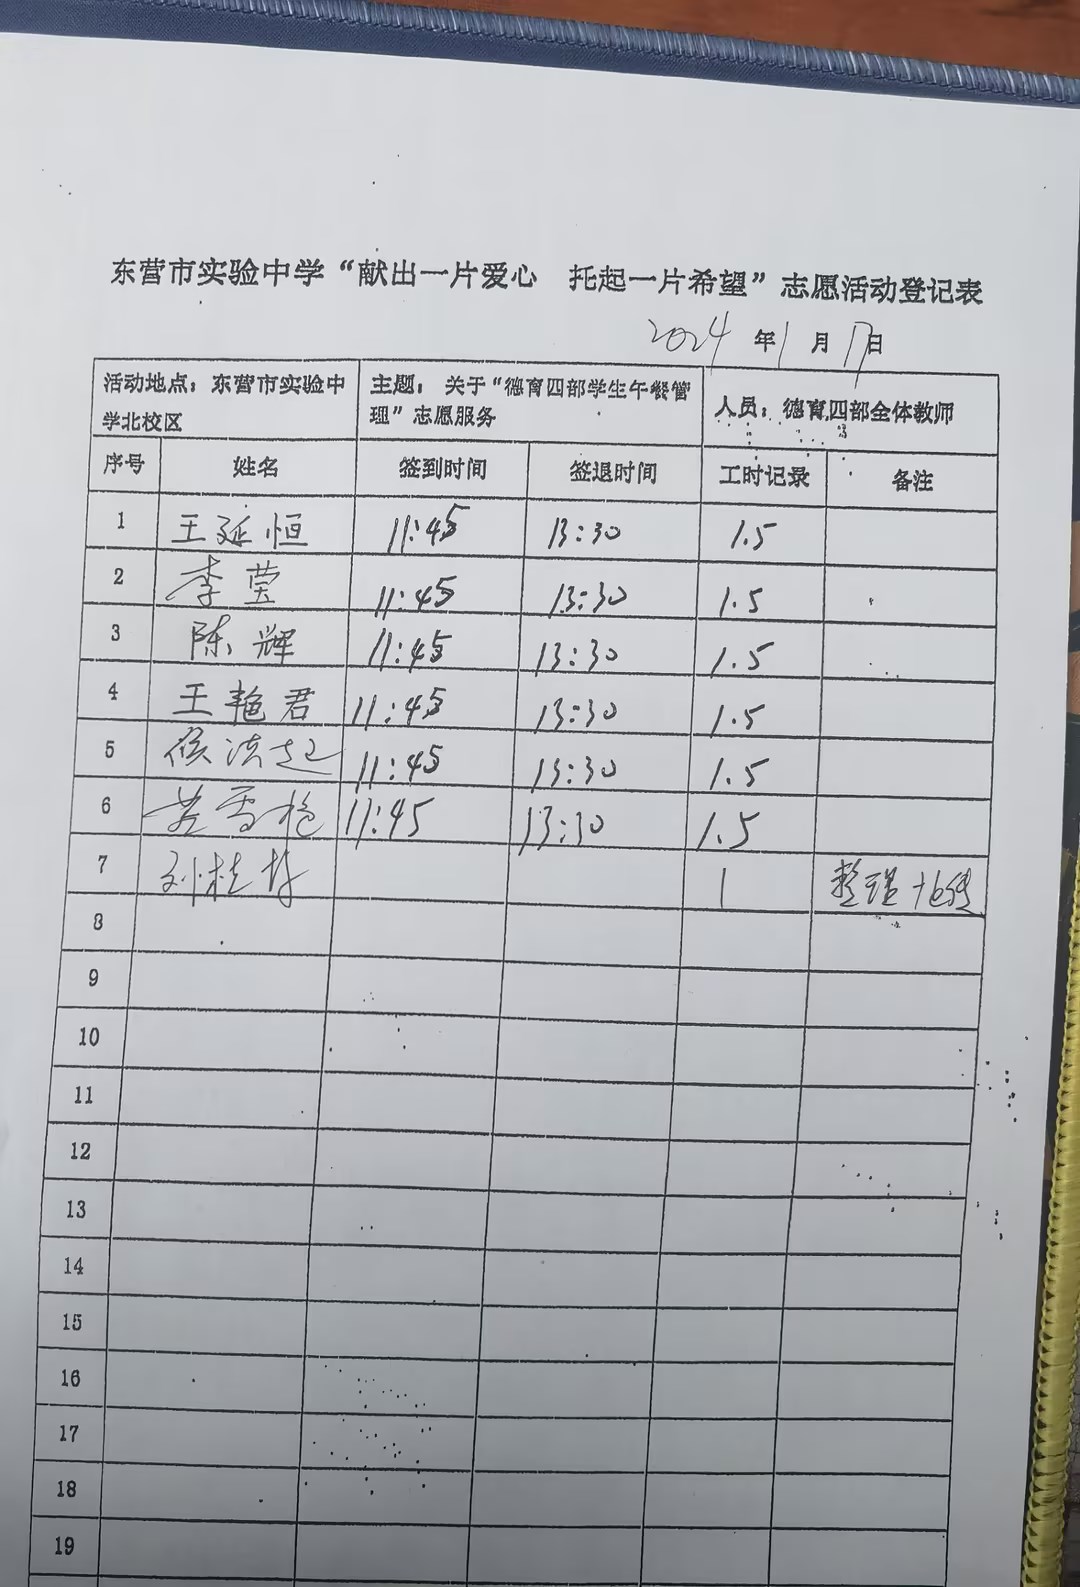 东营市实验中学“献出一片爱心 托起一片希望”志愿活动登记表
2024年1月17日
活动地点：东营市实验中学北校区 主题：关于“德育四部学生午餐管理”志愿服务 人员：德育四部全体教师
序号 姓名 签到时间 签退时间 工时记录 备注
1 王延恒 11:45 13:30 1.5
2 李莹 11:45 13:30 1.5
3 陈辉 11:45 13:30 1.5
4 王艳君 11:45 13:30 1.5
5 侯法起 11:45 13:30 1.5
6 11:45 13:30 1.5
7 刘桂 1 整理
8
9
10
11
12
13
14
15
16
17
18
19